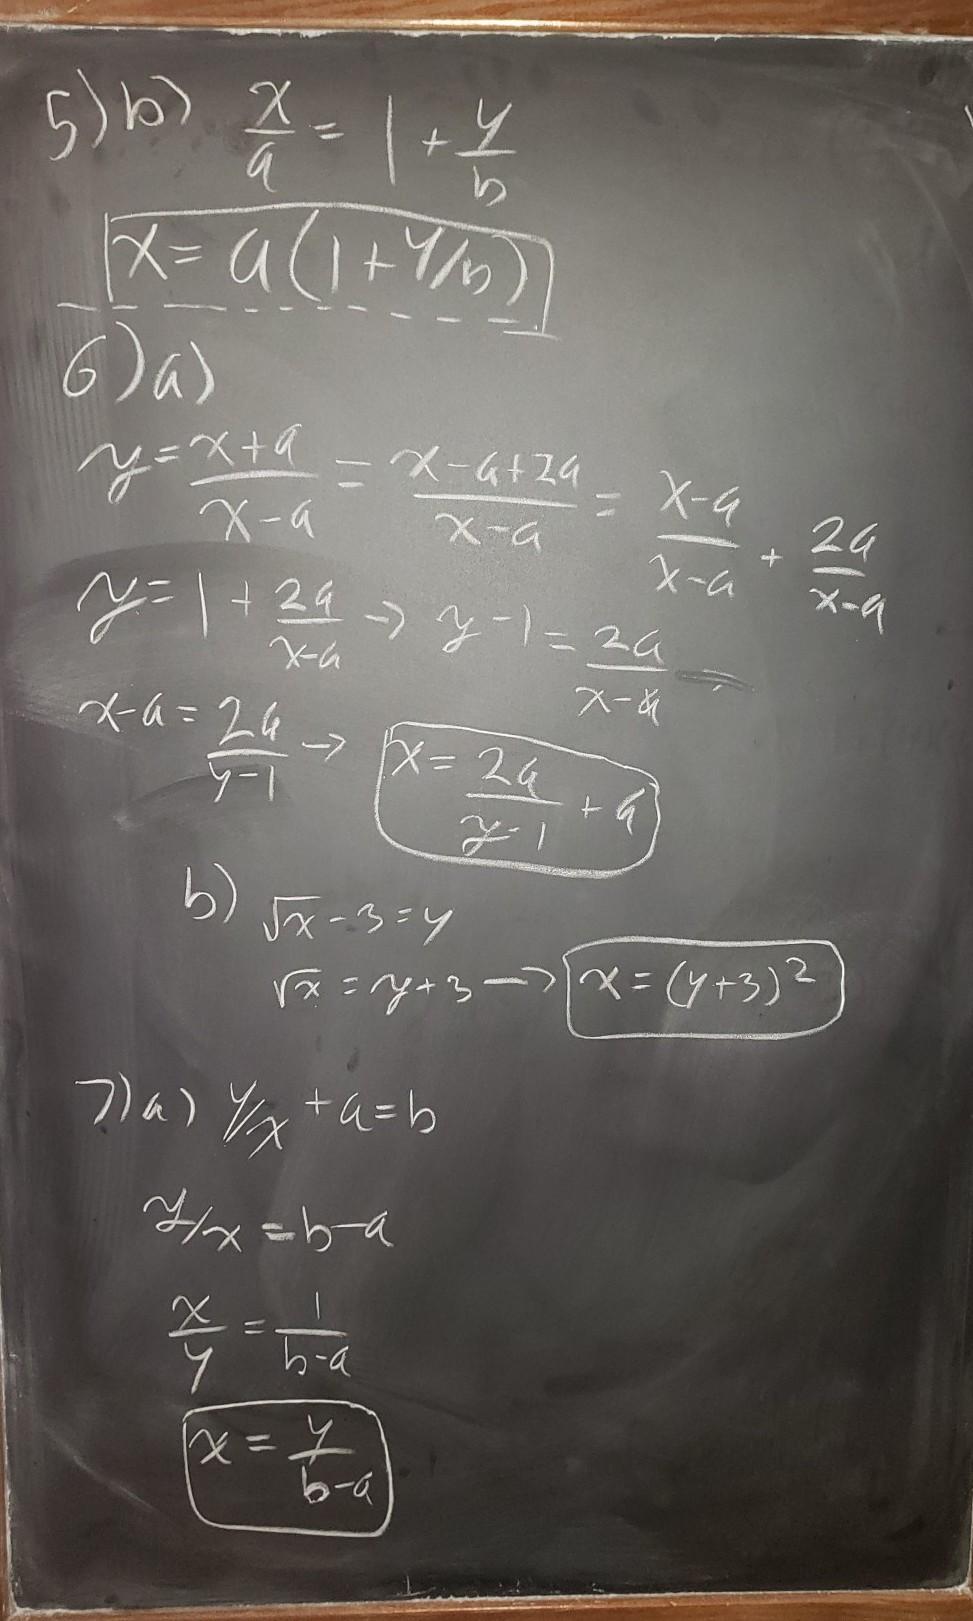 5) b) x/a = 1 + y/b
x = a(1 + y/b)
6) a)
y = (x+a)/(x-a) = (x-a+2a)/(x-a) = (x-a)/(x-a) + 2a/(x-a)
y = 1 + 2a/(x-a) → y-1 = 2a/(x-a)
x-a = 2a/(y-1) → x = 2a/(y-1) + a
b) √x - 3 = y
√x = y+3 → x = (y+3)²
7) a) y/x + a = b
y/x = b-a
x/y = 1/(b-a)
x = y/(b-a)